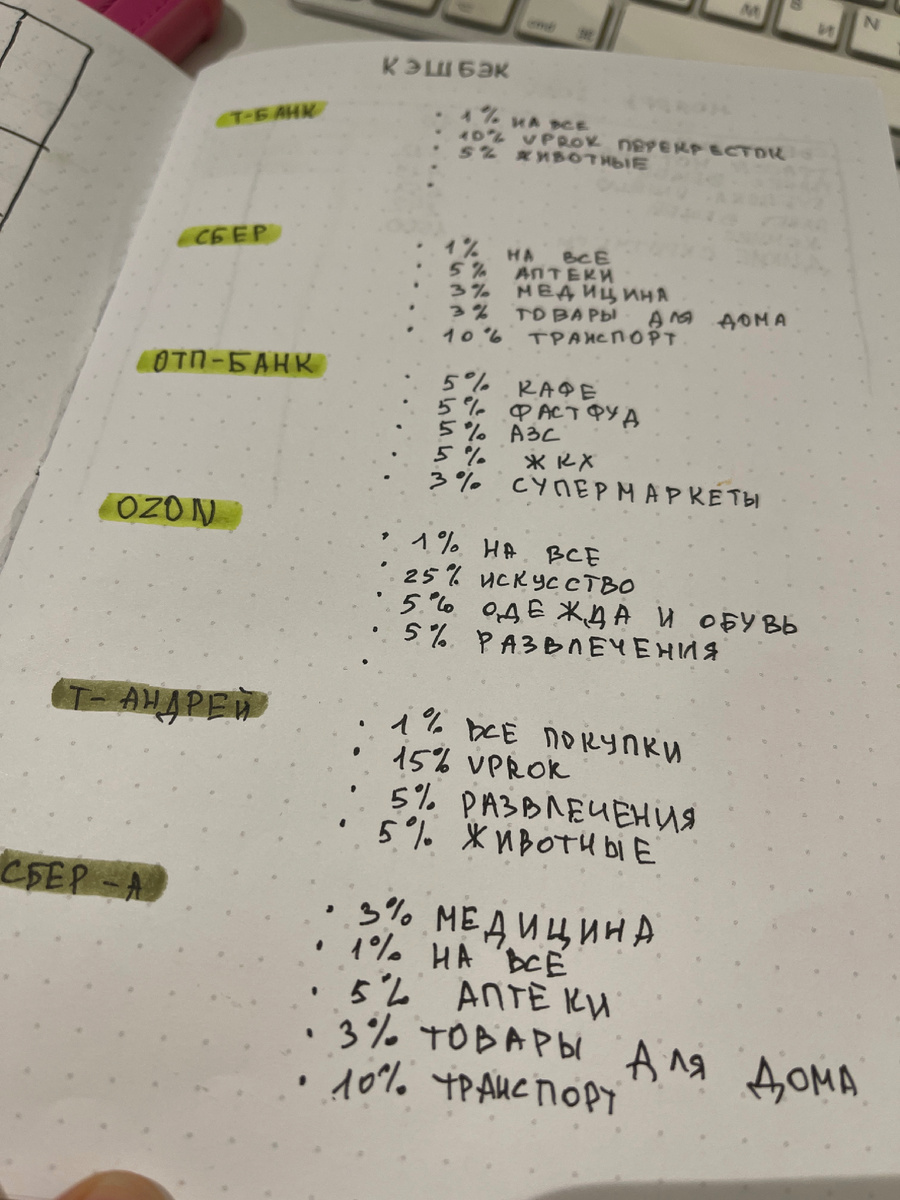 КЭШБЭК
Т-БАНК
· 1% НА ВСЕ
· 10% VPROK ПЕРЕКРЕСТОК
· 5% ЖИВОТНЫЕ
·
·
СБЕР
· 1% НА ВСЕ
· 5% АПТЕКИ
· 3% МЕДИЦИНА
· 3% ТОВАРЫ ДЛЯ ДОМА
· 10% ТРАНСПОРТ
ОТП-БАНК
· 5% КАФЕ
· 5% ФАСТФУД
· 5% АЗС
· 5% ЖКХ
· 3% СУПЕРМАРКЕТЫ
OZON
· 1% НА ВСЕ
· 25% ИСКУССТВО
· 5% ОДЕЖДА И ОБУВЬ
· 5% РАЗВЛЕЧЕНИЯ
·
Т-АНДРЕЙ
· 1% ВСЕ ПОКУПКИ
· 15% VPROK
· 5% РАЗВЛЕЧЕНИЯ
· 5% ЖИВОТНЫЕ
СБЕР-А
· 3% МЕДИЦИНА
· 1% НА ВСЕ
· 5% АПТЕКИ
· 3% ТОВАРЫ ДЛЯ ДОМА
· 10% ТРАНСПОРТ